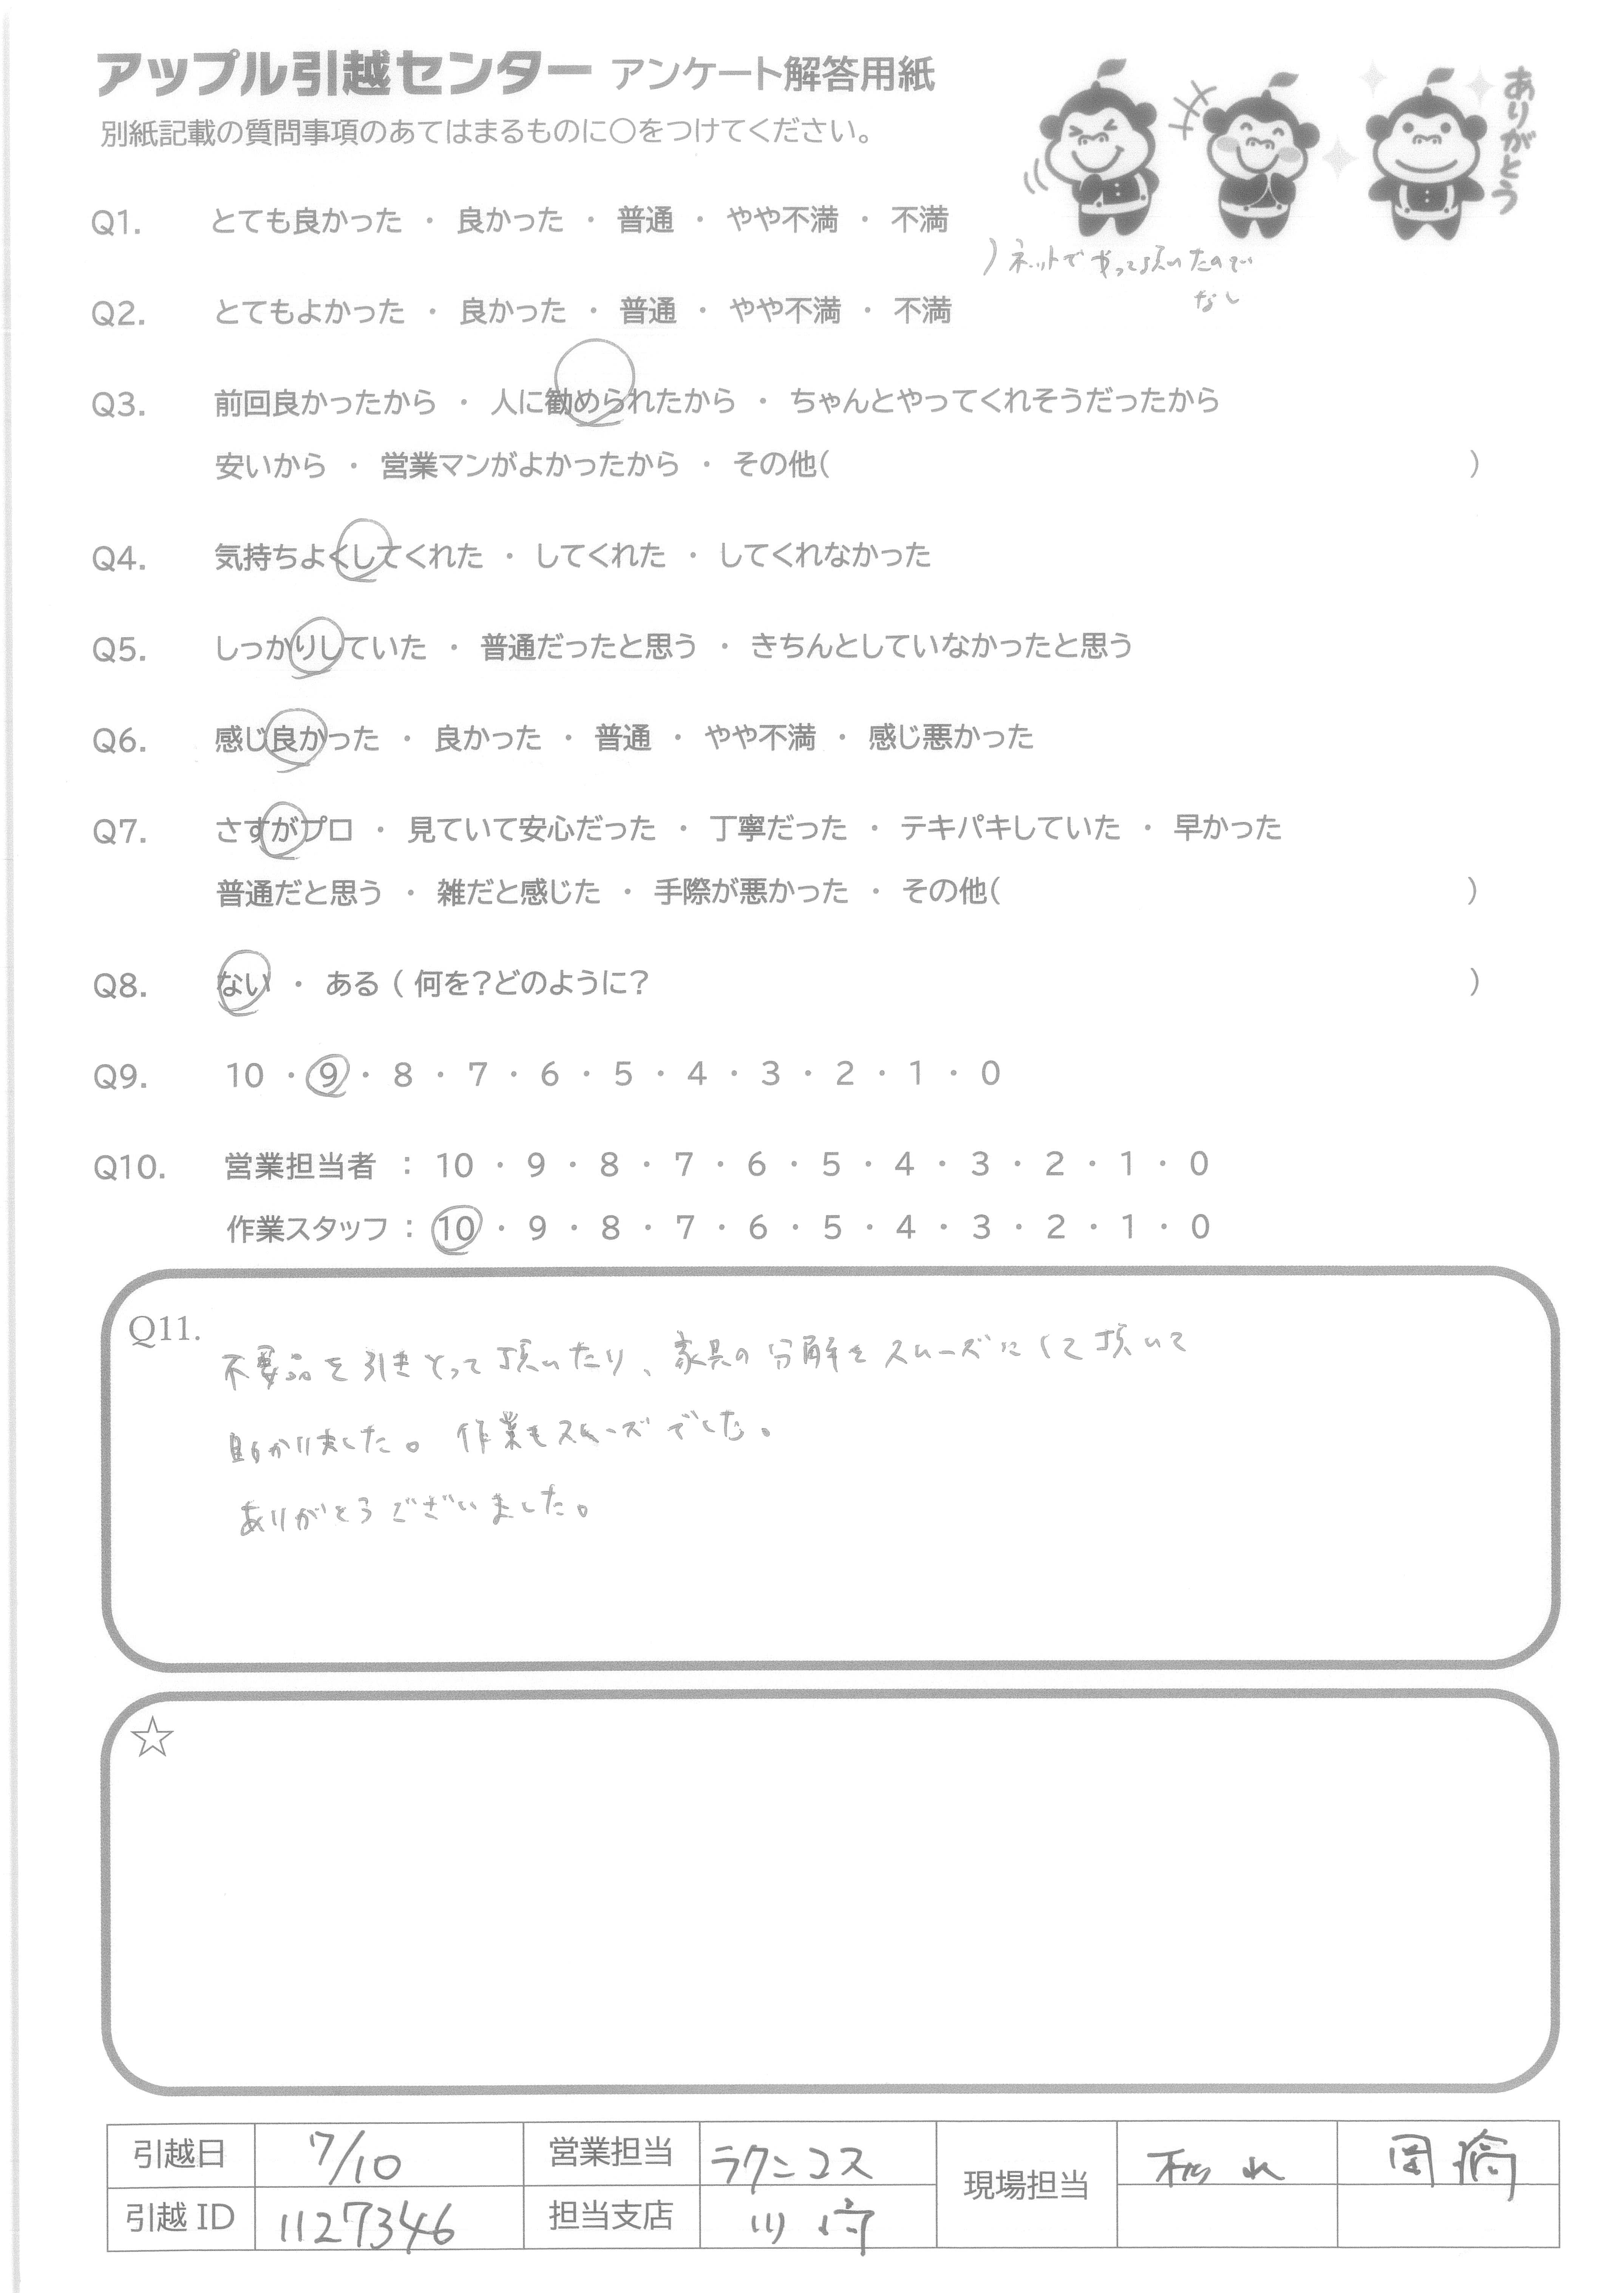 アップル引越センター アンケート解答用紙
ありがとう
別紙記載の質問事項のあてはまるものに○をつけてください。
Q1. とても良かった ・ 良かった ・ 普通 ・ やや不満 ・ 不満
)ネットでやって頂いたので
なし
Q2. とてもよかった ・ 良かった ・ 普通 ・ やや不満 ・ 不満
Q3. 前回良かったから ・ 人に勧められたから ・ ちゃんとやってくれそうだったから
安いから ・ 営業マンがよかったから ・ その他( )
Q4. 気持ちよくしてくれた ・ してくれた ・ してくれなかった
Q5. しっかりしていた ・ 普通だったと思う ・ きちんとしていなかったと思う
Q6. 感じ良かった ・ 良かった ・ 普通 ・ やや不満 ・ 感じ悪かった
Q7. さすがプロ ・ 見ていて安心だった ・ 丁寧だった ・ テキパキしていた ・ 早かった
普通だと思う ・ 雑だと感じた ・ 手際が悪かった ・ その他( )
Q8. ない ・ ある ( 何を?どのように? )
Q9. 10 ・ 9 ・ 8 ・ 7 ・ 6 ・ 5 ・ 4 ・ 3 ・ 2 ・ 1 ・ 0
Q10. 営業担当者 : 10 ・ 9 ・ 8 ・ 7 ・ 6 ・ 5 ・ 4 ・ 3 ・ 2 ・ 1 ・ 0
作業スタッフ : 10 ・ 9 ・ 8 ・ 7 ・ 6 ・ 5 ・ 4 ・ 3 ・ 2 ・ 1 ・ 0
Q11. 不要品を引きとって頂いたり、家具の分解をスムーズにして頂いて
助かりました。作業もスムーズでした。
ありがとうございました。
☆
引越日 7/10 営業担当 ラクニコス 現場担当
引越 ID 1127346 担当支店